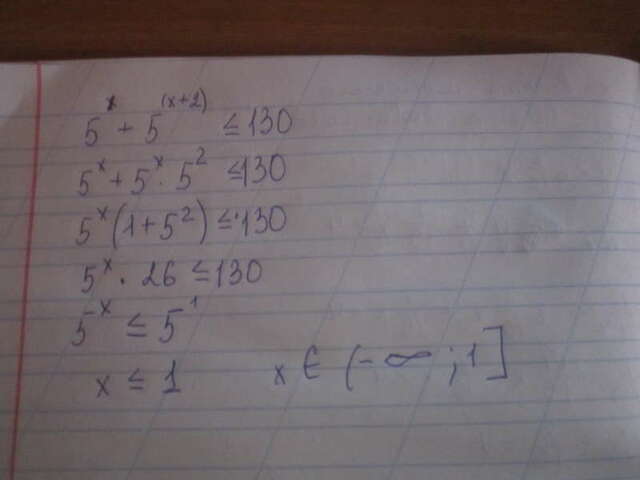 5^x + 5^(x+2) ≤ 130
5^x + 5^x · 5^2 ≤ 130
5^x (1 + 5^2) ≤ 130
5^x · 26 ≤ 130
5^x ≤ 5^1
x ≤ 1 x ∈ (-∞ ; 1]